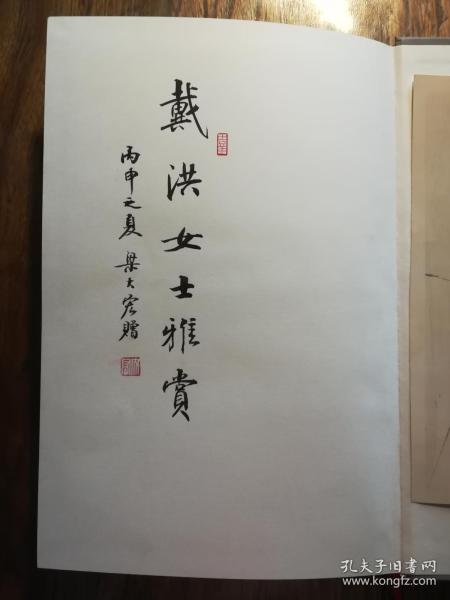 戴洪女士雅赏
丙申之夏 梁大宏赠
孔夫子旧书网
www.kongfz.com